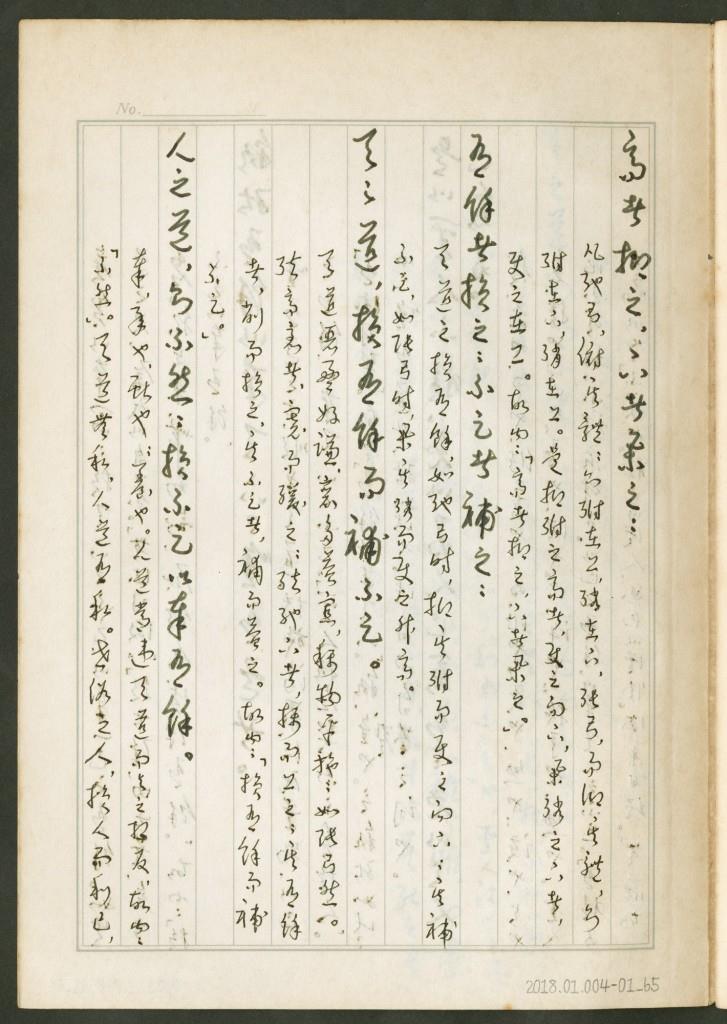 No.
高者抑之，下者舉之：
凡弛弓，俯其體：則弣在上，弰在下，張弓，而仰其體，則
弣在下，弰在上。是抑弣之高者，使之向下，舉弰之下者，
使之在上。故曰：「高者抑之，下者舉之。」
有餘者損之：不足者補之：
天道之損有餘，如弛弓時，抑其弣而使之向下：其補
不足，如張弓時，舉其弰而使之升高。
天之道，損有餘而補不足。
天道惡盈好謙，裒多益寡，稱物平施：如張弓然。
弦高急者，寬而緩之：弦弛下者，揚而上之：其有餘
者，削而損之，其不足者，補而益之。故曰：「損有餘而補
不足。」
人之道，則不然：損不足以奉有餘。
奉，承也，獻也，養也。人道常違天道而與之相反，故曰：
「不然」。天道無私，人道有私。世俗之人，損人而利己，
2018.01.004-01_65